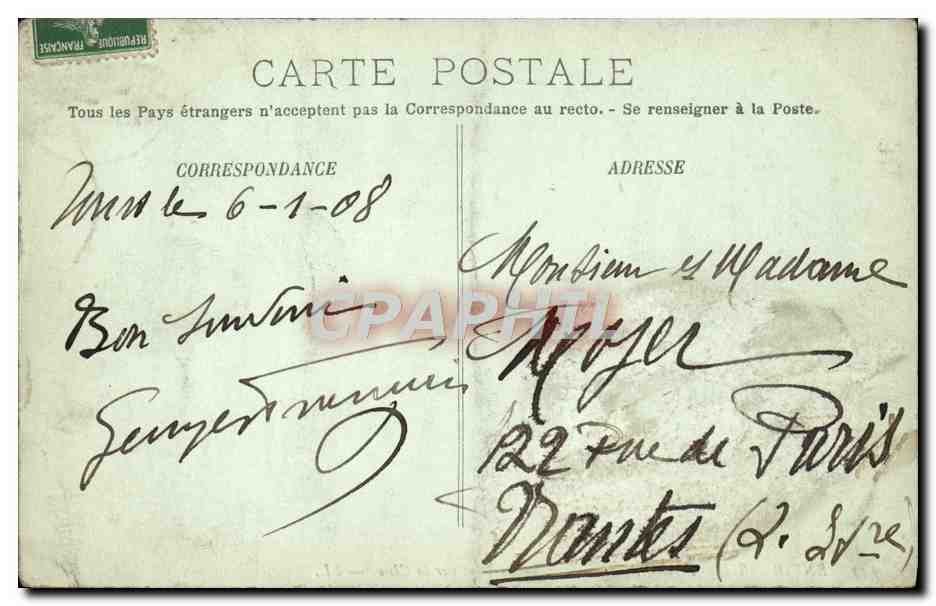 REPUBLIQUE FRANÇAISE
CARTE POSTALE
Tous les Pays étrangers n'acceptent pas la Correspondance au recto. - Se renseigner à la Poste.
CORRESPONDANCE
le 6-1-08
Bon Souvenir
Georges
ADRESSE
Monsieur et Madame
Moyer
122 Rue de Paris
Nantes (L. Infre)
CPAPHIL